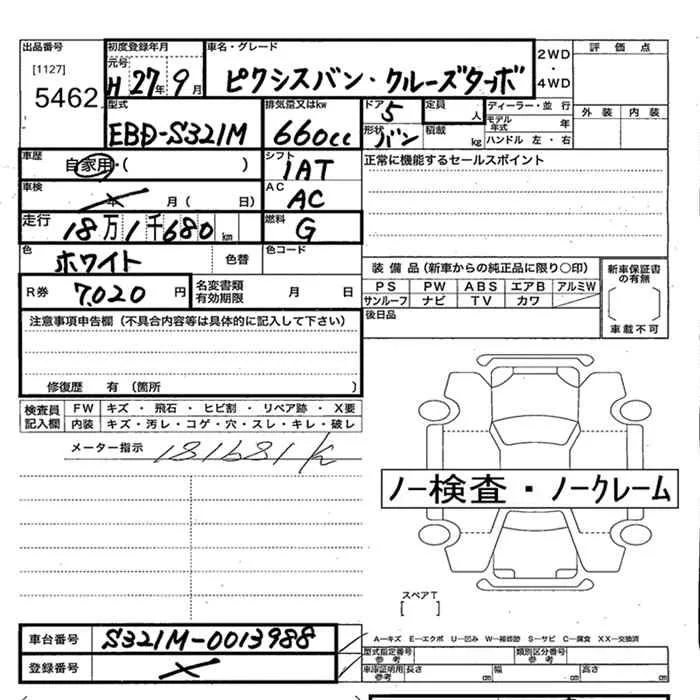 出品番号
[1127]
5462
初度登録年月
元号
H 27年 9月
車名・グレード
ピクシスバン・クルーズターボ
2WD
・
4WD
評価点
外装 内装
型式
EBD-S321M
排気量又はkw
660cc
ドア
5
形状
バン
定員
人
積載
kg
ディーラー・並行
モデル年式 年
ハンドル 左・右
車歴
自家用・( )
シフト
1AT
正常に機能するセールスポイント
車検
年 月( 日)
AC
AC
走行
18万1千680km
燃料
G
色
ホワイト
色替
色コード
装備品(新車からの純正品に限り〇印)
PS PW ABS エアB アルミW
サンルーフ ナビ TV カワ
新車保証書の有無
車載不可
R券
7,020円
名変書類
有効期限
月 日
後日品
注意事項申告欄(不具合内容等は具体的に記入して下さい)
修復歴 有(箇所 )
検査員
記入欄
FW キズ・飛石・ヒビ割・リペア跡・X要
内装 キズ・汚レ・コゲ・穴・スレ・キレ・破レ
メーター指示
181681k
ノー検査・ノークレーム
スペアT
[ ]
車台番号
S321M-0013988
登録番号
A―キズ E―エクボ U―凹み W―補修跡 S―サビ C―腐食 XX―交換済
型式指定番号
参考
類別区分番号
参考
車庫証明用
参考
長さ cm 幅 cm 高さ cm